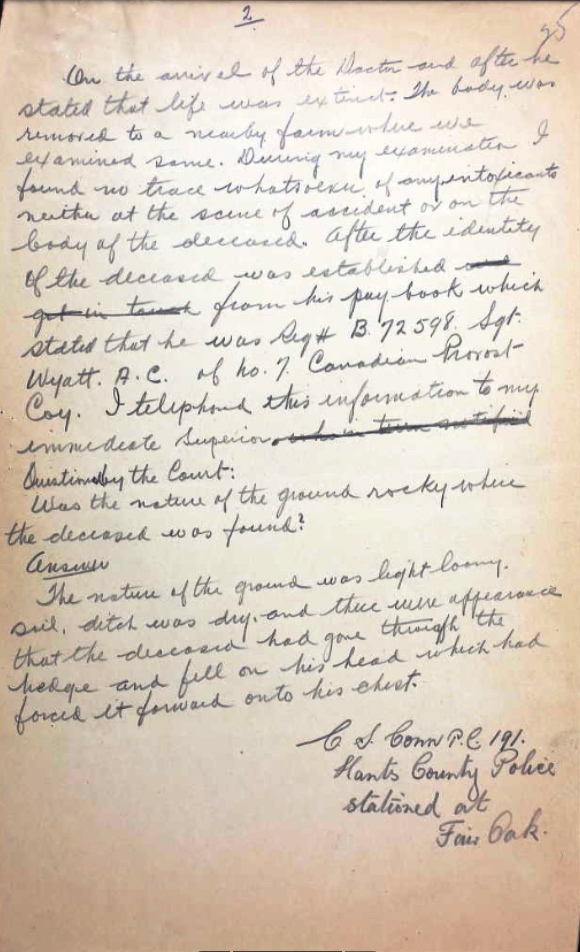 2
25
On the arrival of the Doctor and after he
stated that life was extinct. The body was
removed to a nearby farm where we
examined same. During my examination I
found no trace whatsoever of any intoxicants
neither at the scene of accident or on the
body of the deceased. After the identity
of the deceased was established and
get in touch from his pay book which
stated that he was Reg# B.72598. Sgt.
Wyatt. A.C. of No. 7. Canadian Provost
Coy. I telephoned this information to my
immediate Superior who in turn notified
Questioned by the Court:
Was the nature of the ground rocky where
the deceased was found?
Answer
The nature of the ground was light loamy.
soil, ditch was dry, and there were appearance
that the deceased had gone through the
hedge and fell on his head which had
forced it forward onto his chest.
C S. Conn P.C. 191.
Hants County Police
stationed at
Fair Oak.